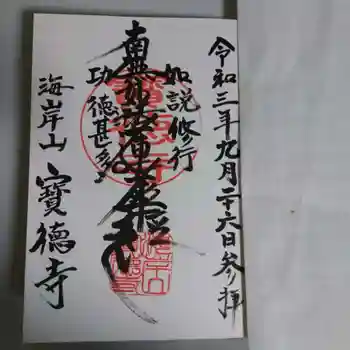 令和三年九月二十六日参拝
如説修行
南無妙法蓮華経
功徳甚多
海岸山 寶德寺